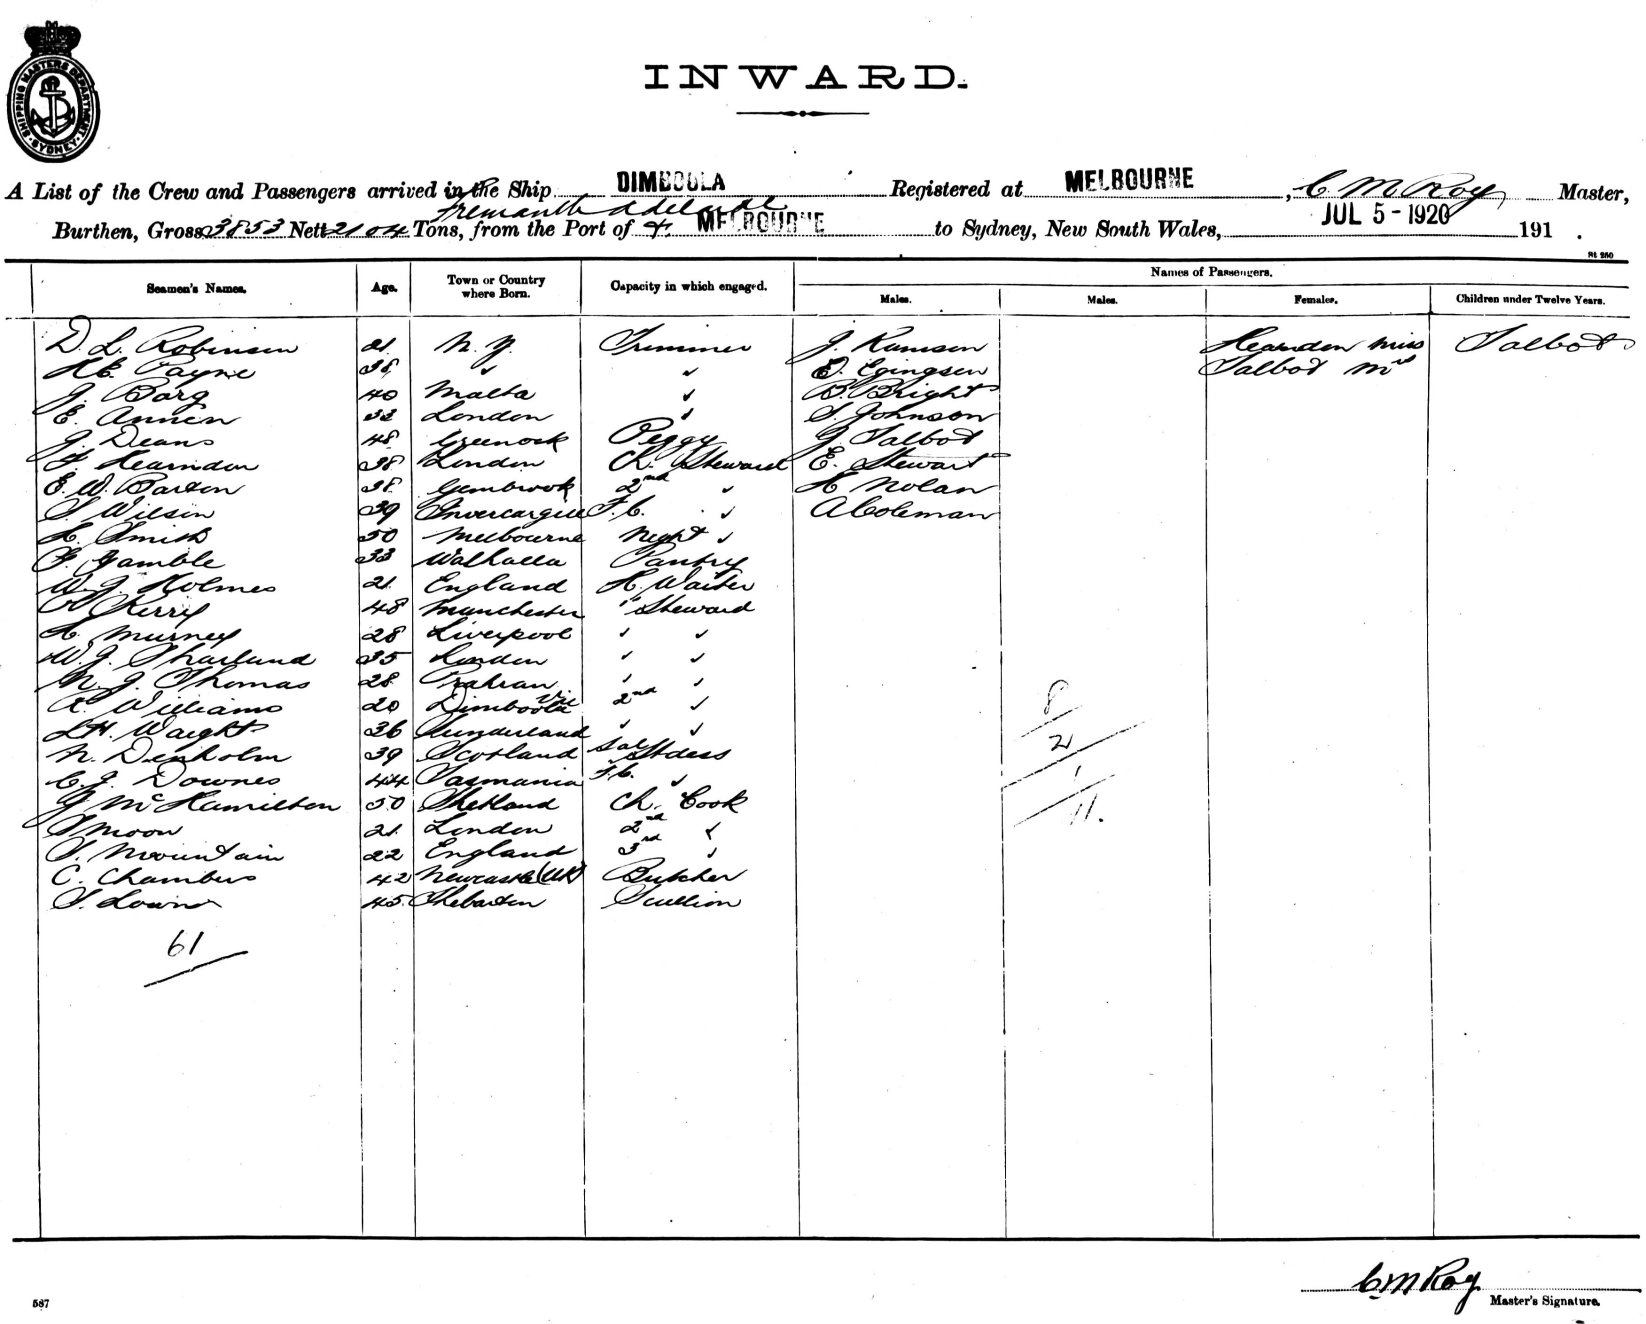 SHIPPING MASTERS DEPARTMENT SYDNEY
INWARD.
A List of the Crew and Passengers arrived in the Ship DIMBOOLA Registered at MELBOURNE, C. M. Roy Master,
Fremantle Adelaide
Burthen, Gross 3853 Nett 2104 Tons, from the Port of & MELBOURNE to Sydney, New South Wales, JUL 5-1920 191 .
St 250
Seamen's Names. Age. Town or Country where Born. Capacity in which engaged. Names of Passengers.
Males. Males. Females. Children under Twelve Years.
D. L. Robinson 21 N. Z. Trimmer J. Ramson Hearnden Miss Talbot
Payne 38 " " E. Egingsen Talbot Mrs
J. Borg 40 Malta " B. Bright
E. Annen 33 London " S. Johnson
J. Deans 48 Greenock Peggy G. Talbot
F. Hearnden 38 London Ch. Steward E. Stewart
E. W. Barton 38 Gembrook 2nd " H Nolan
S Wilson 39 Invercargill F.C. " A Coleman
H. Smith 50 Melbourne Night "
F. Gamble 33 Walhalla Pantry
W. J. Holmes 21 England H. Waiter
Kerry 48 Manchester " Steward
H. Murney 28 Liverpool " "
W. J. Sharland 35 London " "
N. J. Thomas 28 Prahran " "
R. Williams 20 Dimboola Vic 2nd " 8
L. H. Waight 36 Sunderland " " 2
N. Denholm 39 Scotland Sal Stdess 1
C. J. Downes 44 Tasmania F.C. "
J McHamilton 50 Shetland Ch. Cook 11.
S Moon 21 London 2nd "
S. Mountain 22 England 3rd "
C. Chambers 42 Newcastle (UK) Butcher
S. Lown 45 Shebarton Scullion
61
C. M Roy
587 Master's Signature.